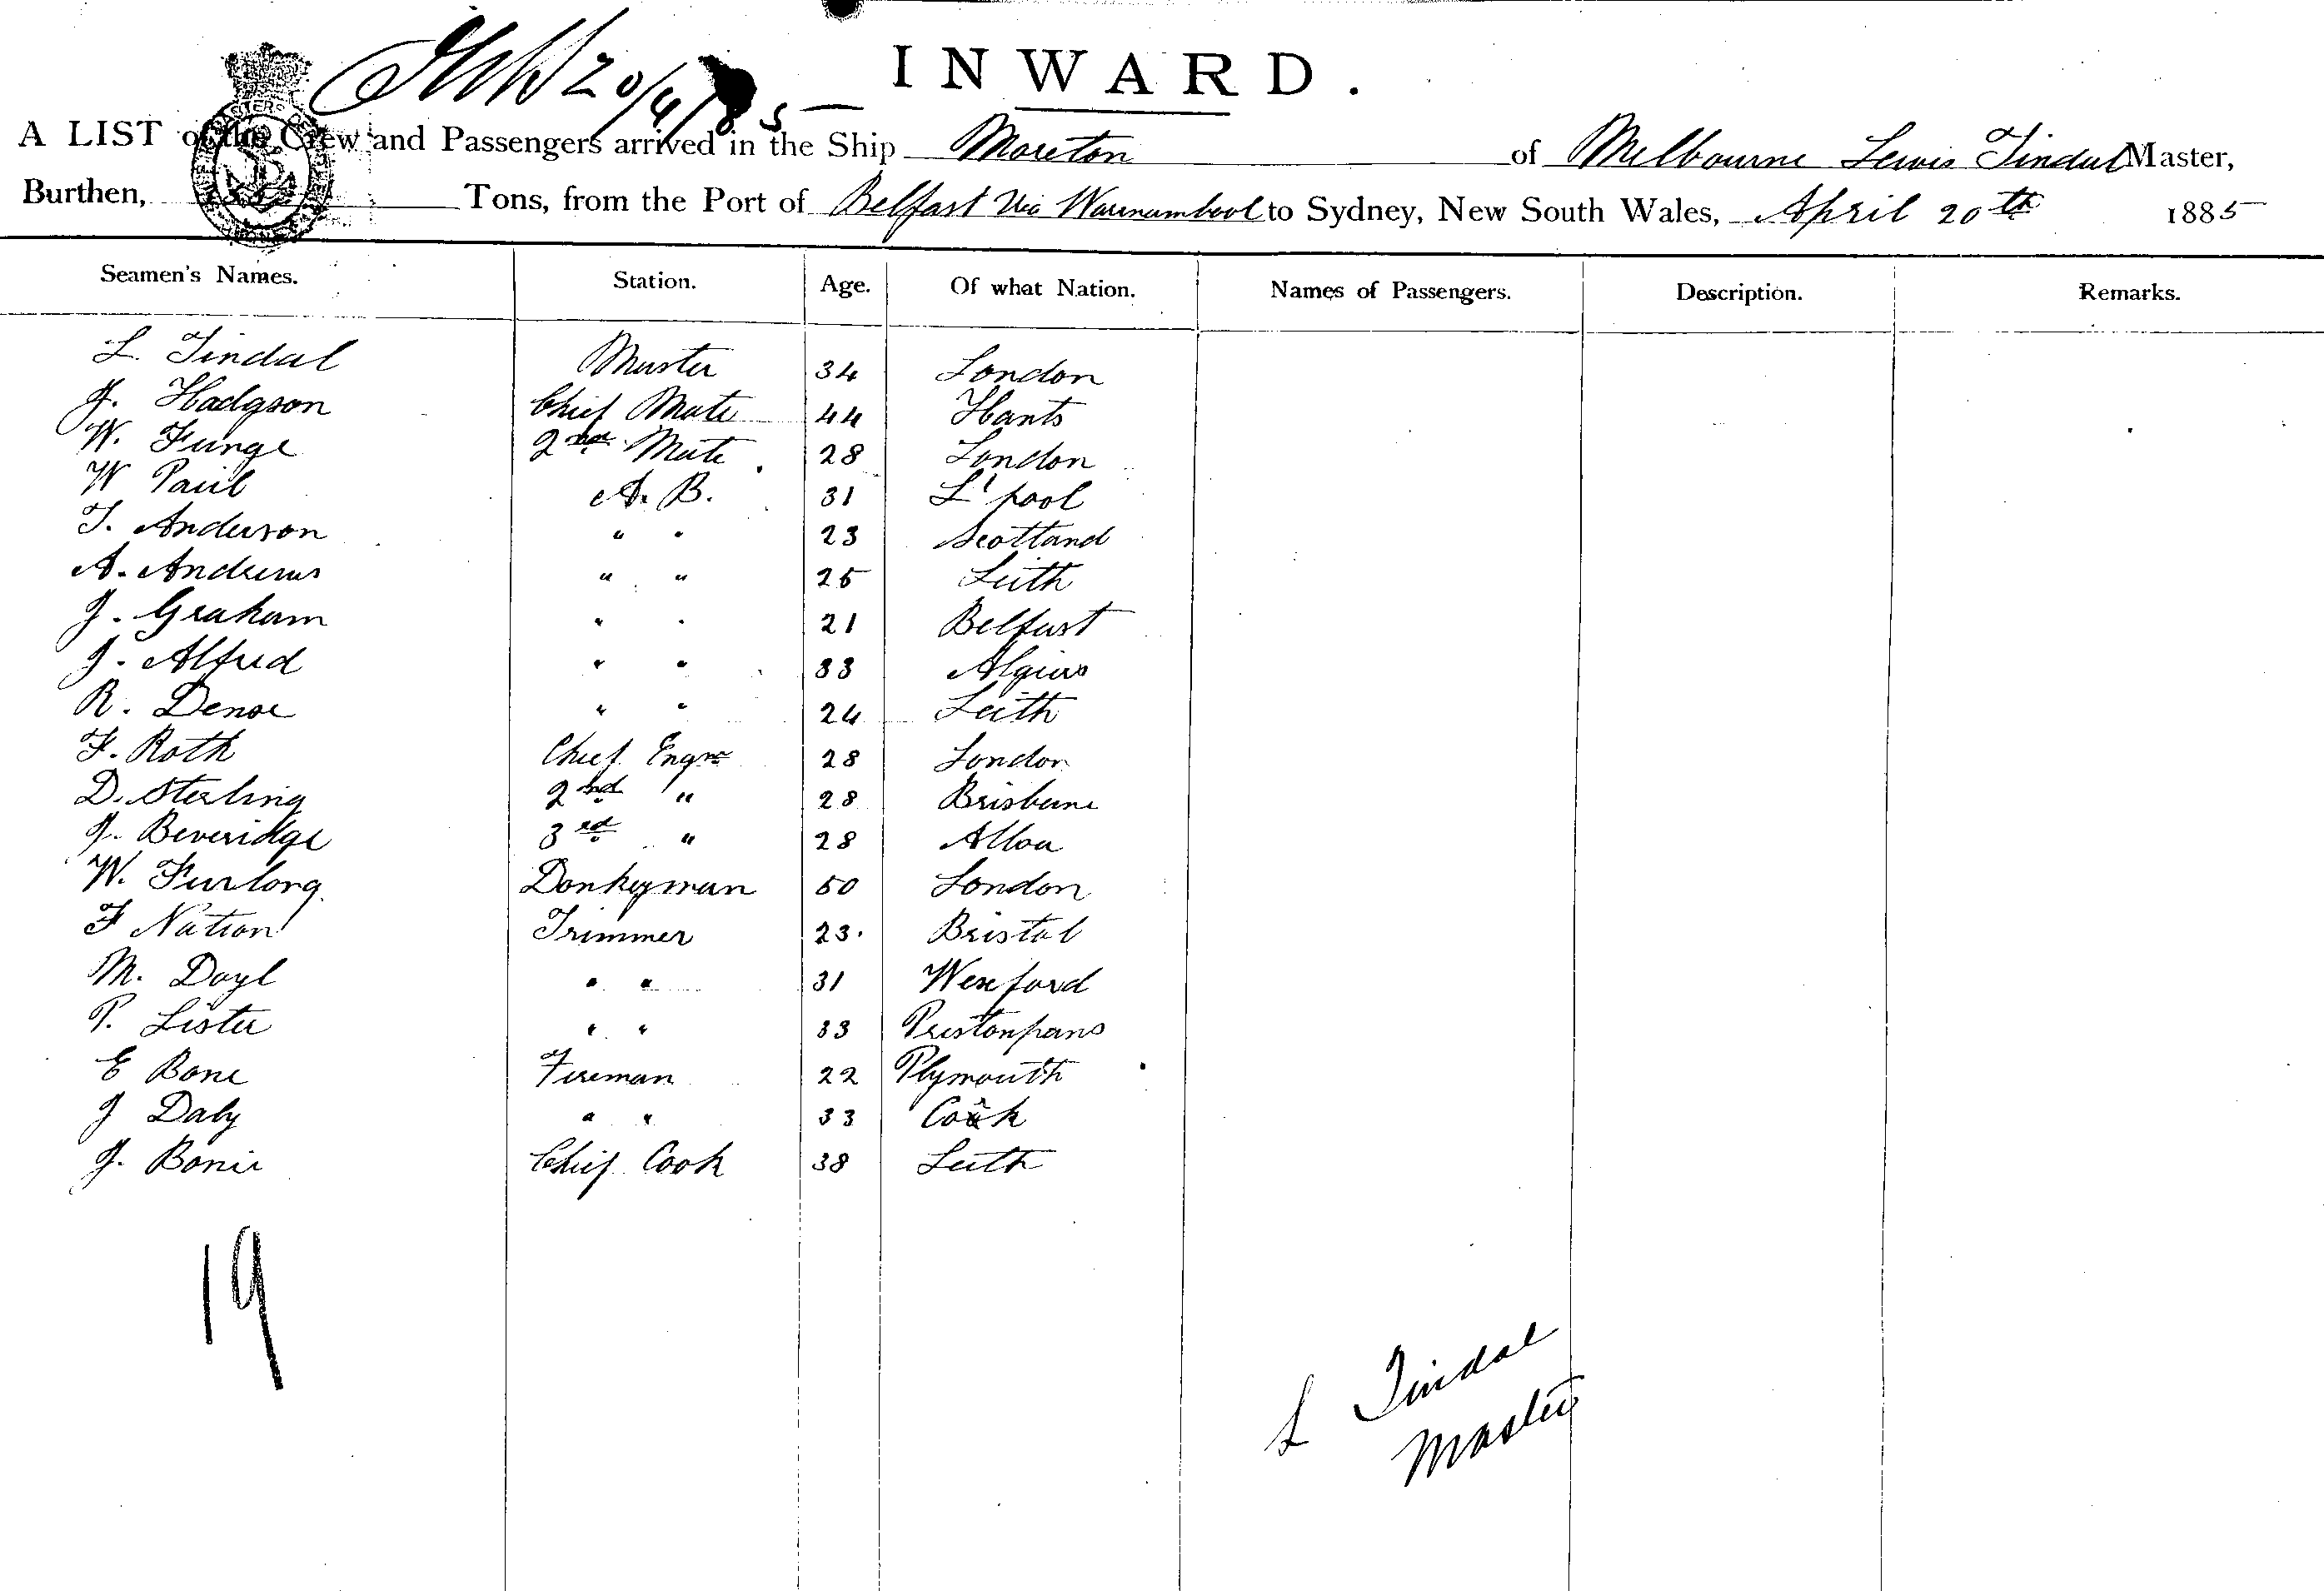 INWARD.
20/4/85
A LIST of the Crew and Passengers arrived in the Ship Moreton of Melbourne Lewis Tindal Master,
Burthen, Tons, from the Port of Belfast via Warnambool to Sydney, New South Wales, April 20th 1885
Seamen's Names. Station. Age. Of what Nation. Names of Passengers. Description. Remarks.
L. Tindal Master 34 London
J. Hodgson Chief Mate 44 Hants
W. Funge 2nd Mate 28 London
W Paul A. B. 31 L'pool
T. Anderson " " 23 Scotland
A. Andrews " " 25 Leith
J. Graham " " 21 Belfast
J. Alfred " " 33 Algiers
R. Dense " " 24 Leith
F. Roth Chief Engr 28 London
D. Sterling 2nd " 28 Brisbane
J. Beveridge 3rd " 28 Alloa
W. Furlong Donkeyman 50 London
F Nation Trimmer 23 Bristol
M. Doyl " " 31 Wexford
P. Lister " " 33 Prestonpans
E Bone Fireman 22 Plymouth
J Daly " " 33 Cork
J. Bonie Chief Cook 38 Leith
19
L Tindal
Master